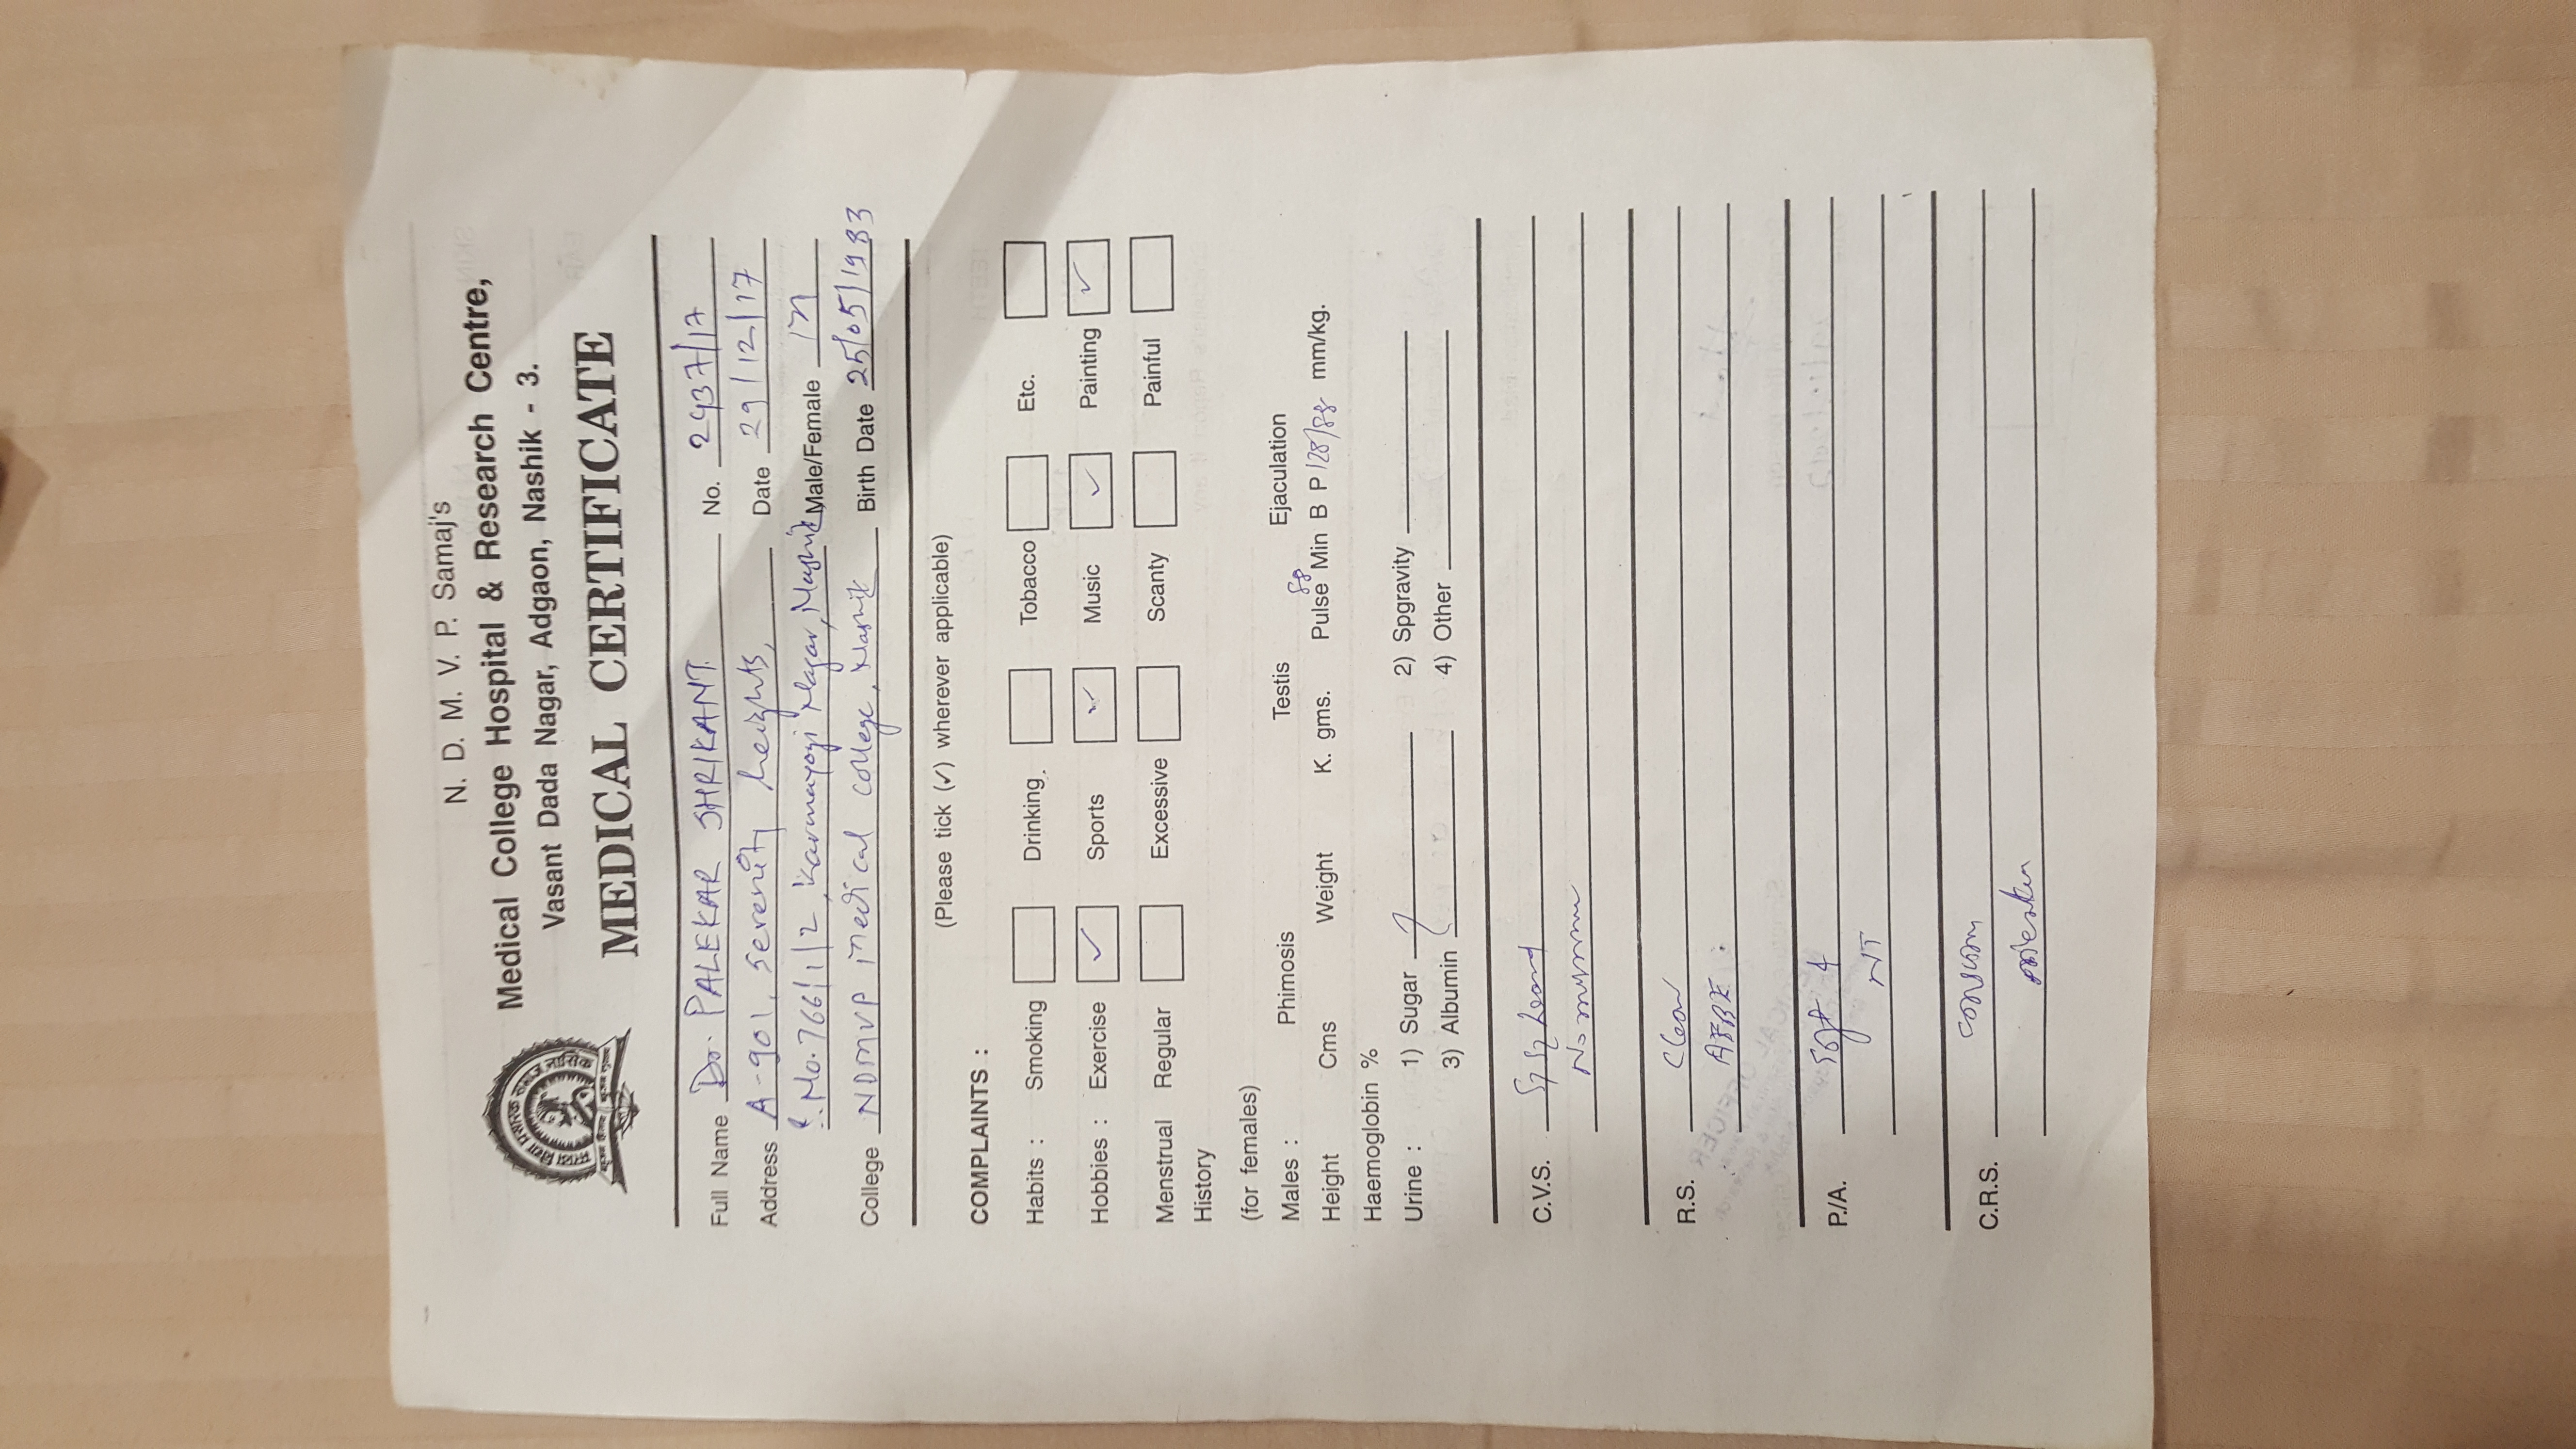 N. D. M. V. P. Samaj's
Medical College Hospital & Research Centre,
Vasant Dada Nagar, Adgaon, Nashik - 3.
MEDICAL CERTIFICATE
Full Name Dr. PALEKAR SHRIKANT. No. 2437/17
Address A-901, Serenity heights, Date 29/12/17
S.No. 766/1/2, Karmayogi Nagar, Nashik Male/Female M
College NDMVP Medical College, Nashik Birth Date 25/05/1983
(Please tick (✓) wherever applicable)
COMPLAINTS :
Habits : Smoking Drinking Tobacco Etc.
Hobbies : Exercise ✓ Sports ✓ Music ✓ Painting ✓
Menstrual Regular Excessive Scanty Painful
History
(for females)
Males : Phimosis Testis Ejaculation
Height Cms Weight K. gms. Pulse 88 Min B P 128/88 mm/kg.
Haemoglobin %
Urine : 1) Sugar 2) Spgravity
3) Albumin 4) Other
C.V.S. S1 S2 heard
No murmur
R.S. Clear
AEBE
P./A. Soft
NT
C.R.S. conscious
oriented